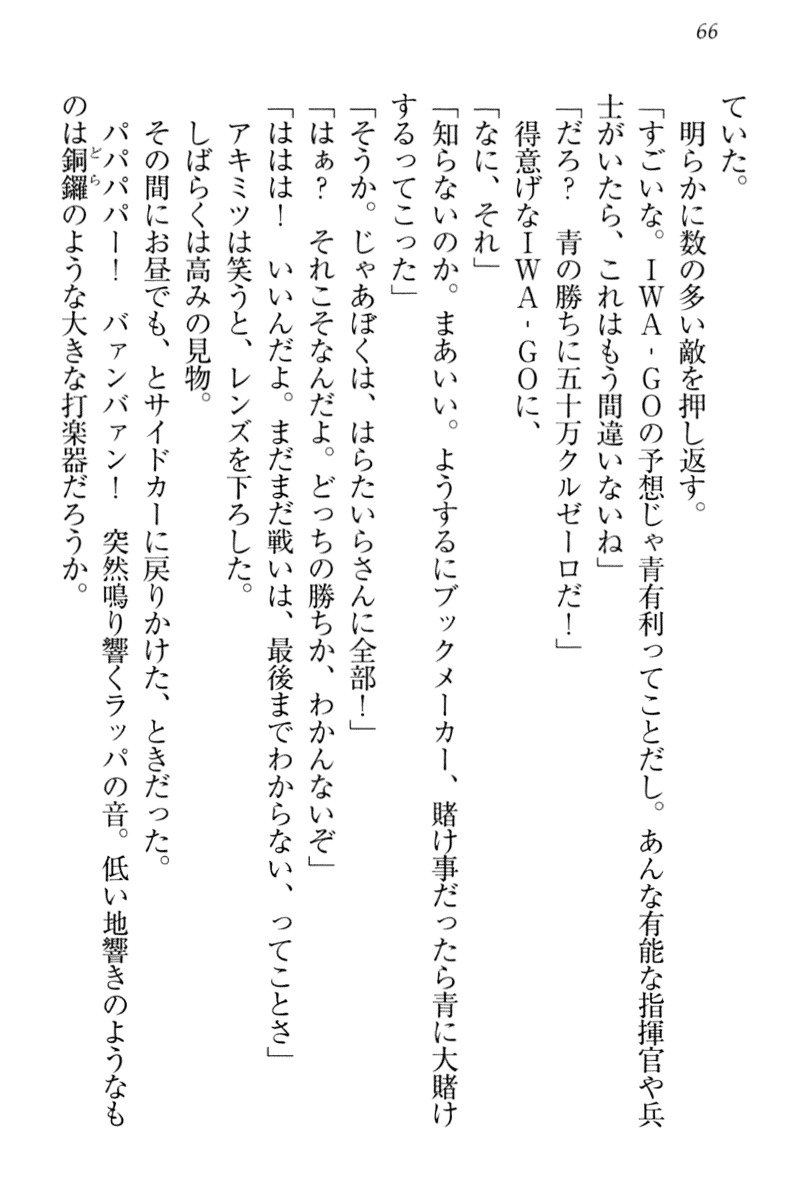 66
ていた。
明らかに数の多い敵を押し返す。
「すごいな。ＩＷＡ‐ＧＯの予想じゃ青有利ってことだし。あんな有能な指揮官や兵
士がいたら、これはもう間違いないね」
「だろ？　青の勝ちに五十万クルゼーロだ！」
得意げなＩＷＡ‐ＧＯに、
「なに、それ」
「知らないのか。まあいい。ようするにブックメーカー、賭け事だったら青に大賭け
するってこった」
「そうか。じゃあぼくは、はらたいらさんに全部！」
「はぁ？　それこそなんだよ。どっちの勝ちか、わかんないぞ」
「ははは！　いいんだよ。まだまだ戦いは、最後までわからない、ってことさ」
アキミツは笑うと、レンズを下ろした。
しばらくは高みの見物。
その間にお昼でも、とサイドカーに戻りかけた、ときだった。
パパパパー！　バァンバァン！　突然鳴り響くラッパの音。低い地響きのようなも
のは銅鑼のような大きな打楽器だろうか。
どら